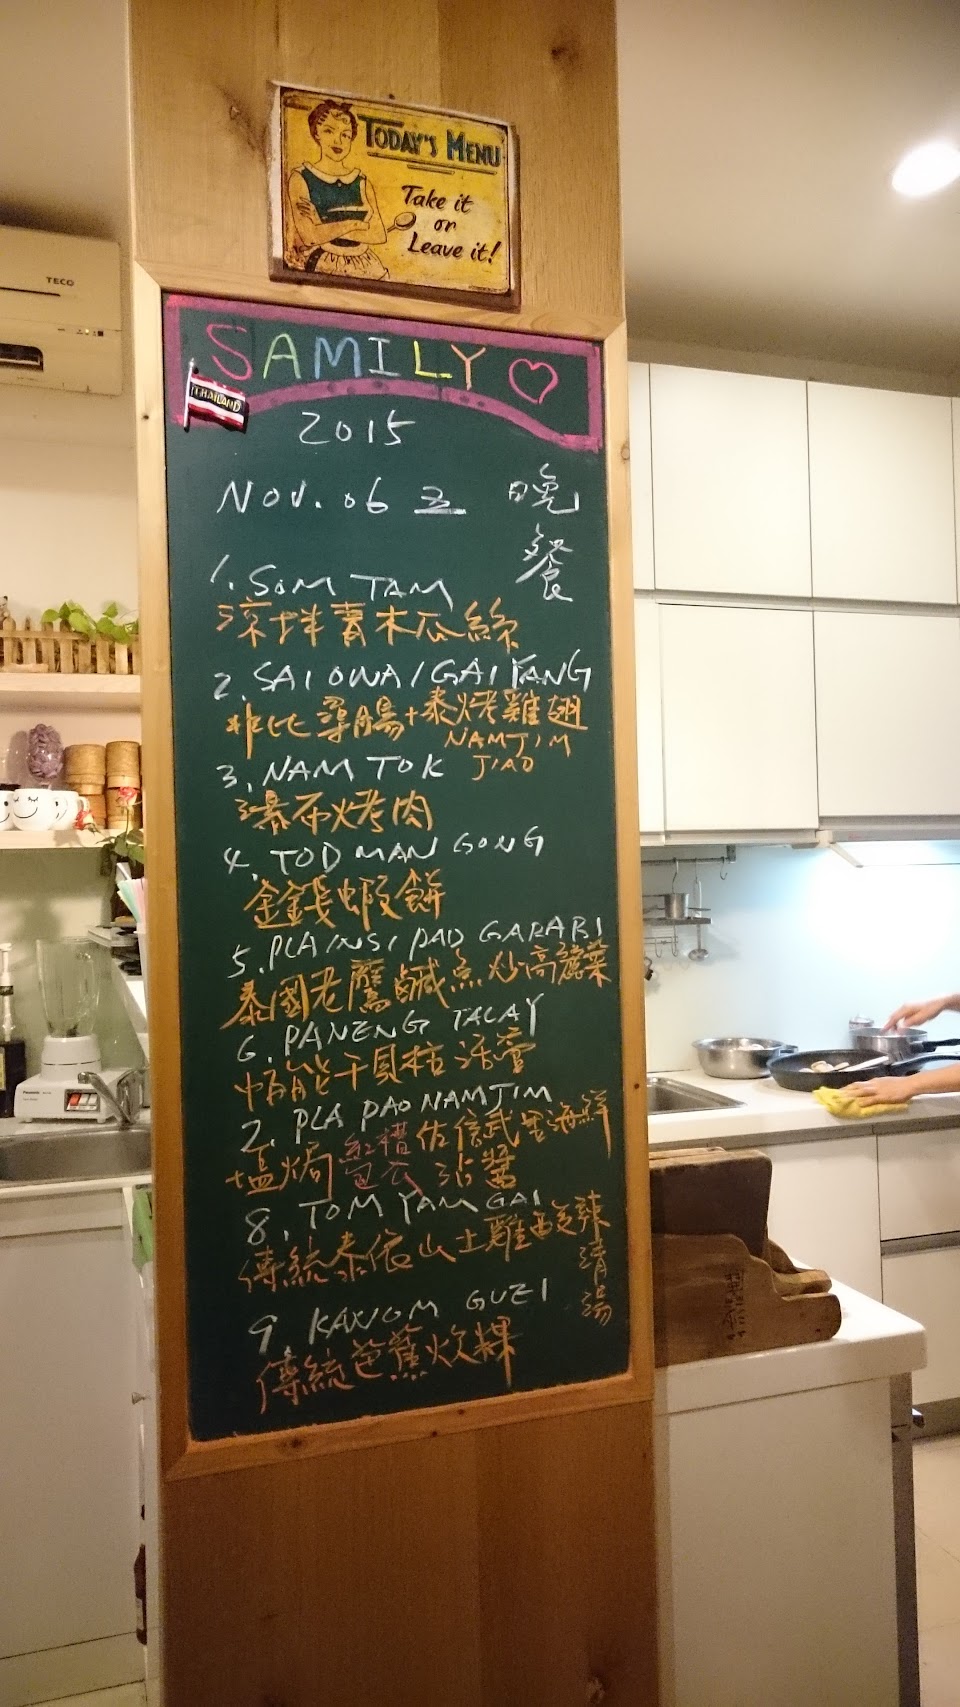 TODAY'S MENU
Take it
or
Leave it!
TECO
SAMILY
THAILAND
2015
NOV. 06 五 晚餐
1. SOM TAM
涼拌青木瓜絲
2. SAI OWA / GAI YANG
非比尋腸+泰烤雞翅
NAMJIM
JIAO
3. NAM TOK
瀑布烤肉
4. TOD MAN GONG
金錢蝦餅
5. PLA INSI PAD GARABI
泰國老鷹鹹魚炒高麗菜
6. PANENG TALAY
帕能干貝
7. PLA PAO NAMJIM
塩焗紅糟包衣佐信武里海鮮沾醬
8. TOM YAM GAI
傳統泰依山土雞酸辣清湯
9. KANOM GUZI
傳統芭蕉炊粿
Panasonic